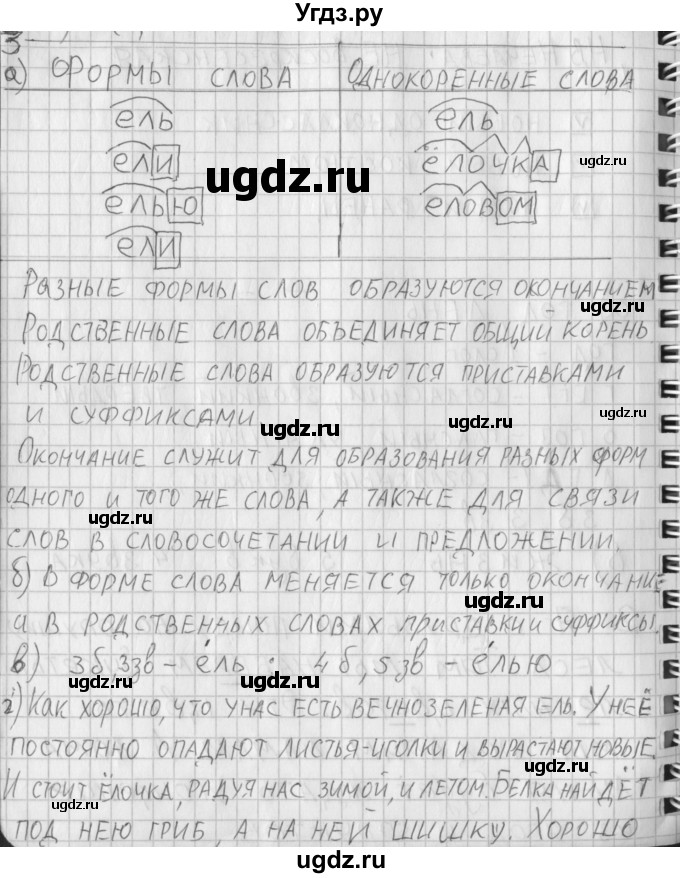 Угдз.ру
3
а) ФОРМЫ СЛОВА ОДНОКОРЕННЫЕ СЛОВА
ель ель
ели ёлочка
елью еловом
ели
РАЗНЫЕ ФОРМЫ СЛОВ ОБРАЗУЮТСЯ ОКОНЧАНИЕМ
РОДСТВЕННЫЕ СЛОВА ОБЪЕДИНЯЕТ ОБЩИЙ КОРЕНЬ
РОДСТВЕННЫЕ СЛОВА ОБРАЗУЮТСЯ ПРИСТАВКАМИ
И СУФФИКСАМИ.
ОКОНЧАНИЕ СЛУЖИТ ДЛЯ ОБРАЗОВАНИЯ РАЗНЫХ ФОРМ
ОДНОГО И ТОГО ЖЕ СЛОВА, А ТАКЖЕ ДЛЯ СВЯЗИ
СЛОВ В СЛОВОСОЧЕТАНИИ И ПРЕДЛОЖЕНИИ.
б) В ФОРМЕ СЛОВА МЕНЯЕТСЯ ТОЛЬКО ОКОНЧАНИЕ
А В РОДСТВЕННЫХ СЛОВАХ ПРИСТАВКИ И СУФФИКСЫ.
в) 3б, 3зв – е́ль. 4б, 5зв – е́лью
г) КАК ХОРОШО, ЧТО У НАС ЕСТЬ ВЕЧНОЗЕЛЕНАЯ ЕЛЬ. У НЕЁ
ПОСТОЯННО ОПАДАЮТ ЛИСТЬЯ-ИГОЛКИ И ВЫРАСТАЮТ НОВЫЕ.
И СТОИТ ЁЛОЧКА, РАДУЯ НАС ЗИМОЙ, И ЛЕТОМ. БЕЛКА НАЙДЁТ
ПОД НЕЮ ГРИБ, А НА НЕЙ ШИШКУ. ХОРОШО
ugdz.ru